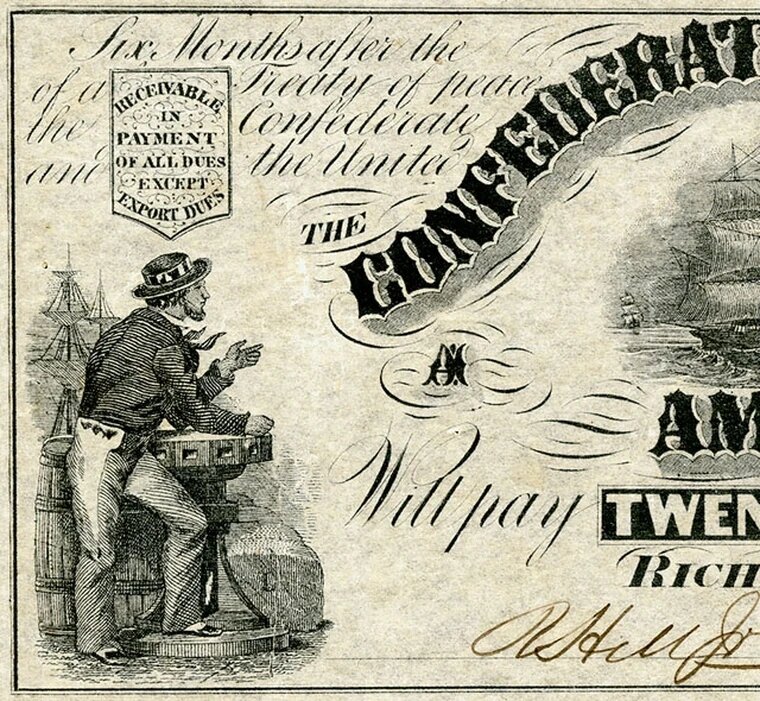 Six Months after the
of a Treaty of peace
the Confederate
and the United
RECEIVABLE
IN
PAYMENT
OF ALL DUES
EXCEPT
EXPORT DUES
THE CONFEDERAT
Will pay TWEN
AM
RICH
R Hill Jr